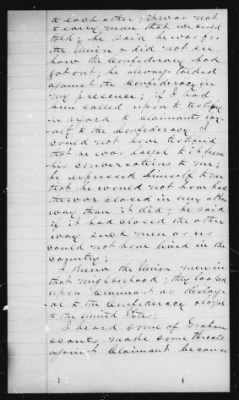 to each other; it was not
to every man that we could
talk; he said he was for
the Union & did not see
how the Confederacy had
got out; he always talked
against the Confederacy in
my presence; if I had
been called upon to testify
in regard to claimants loy-
alty to the Confederacy I
could not have testified
that he was loyal to it from
his conversations to me;
he expressed himself to me
that he would not have had
the war closed in any other
way than it did; he said
if it had closed the other
way such men as us
could not have lived in the
country;
I knew the Union men in
that neighborhood; they looked
upon claimant as disloy-
al to the Confederacy & loyal
to the United States;
I heard some of Graham
scouts, make some threats
against Claimant because